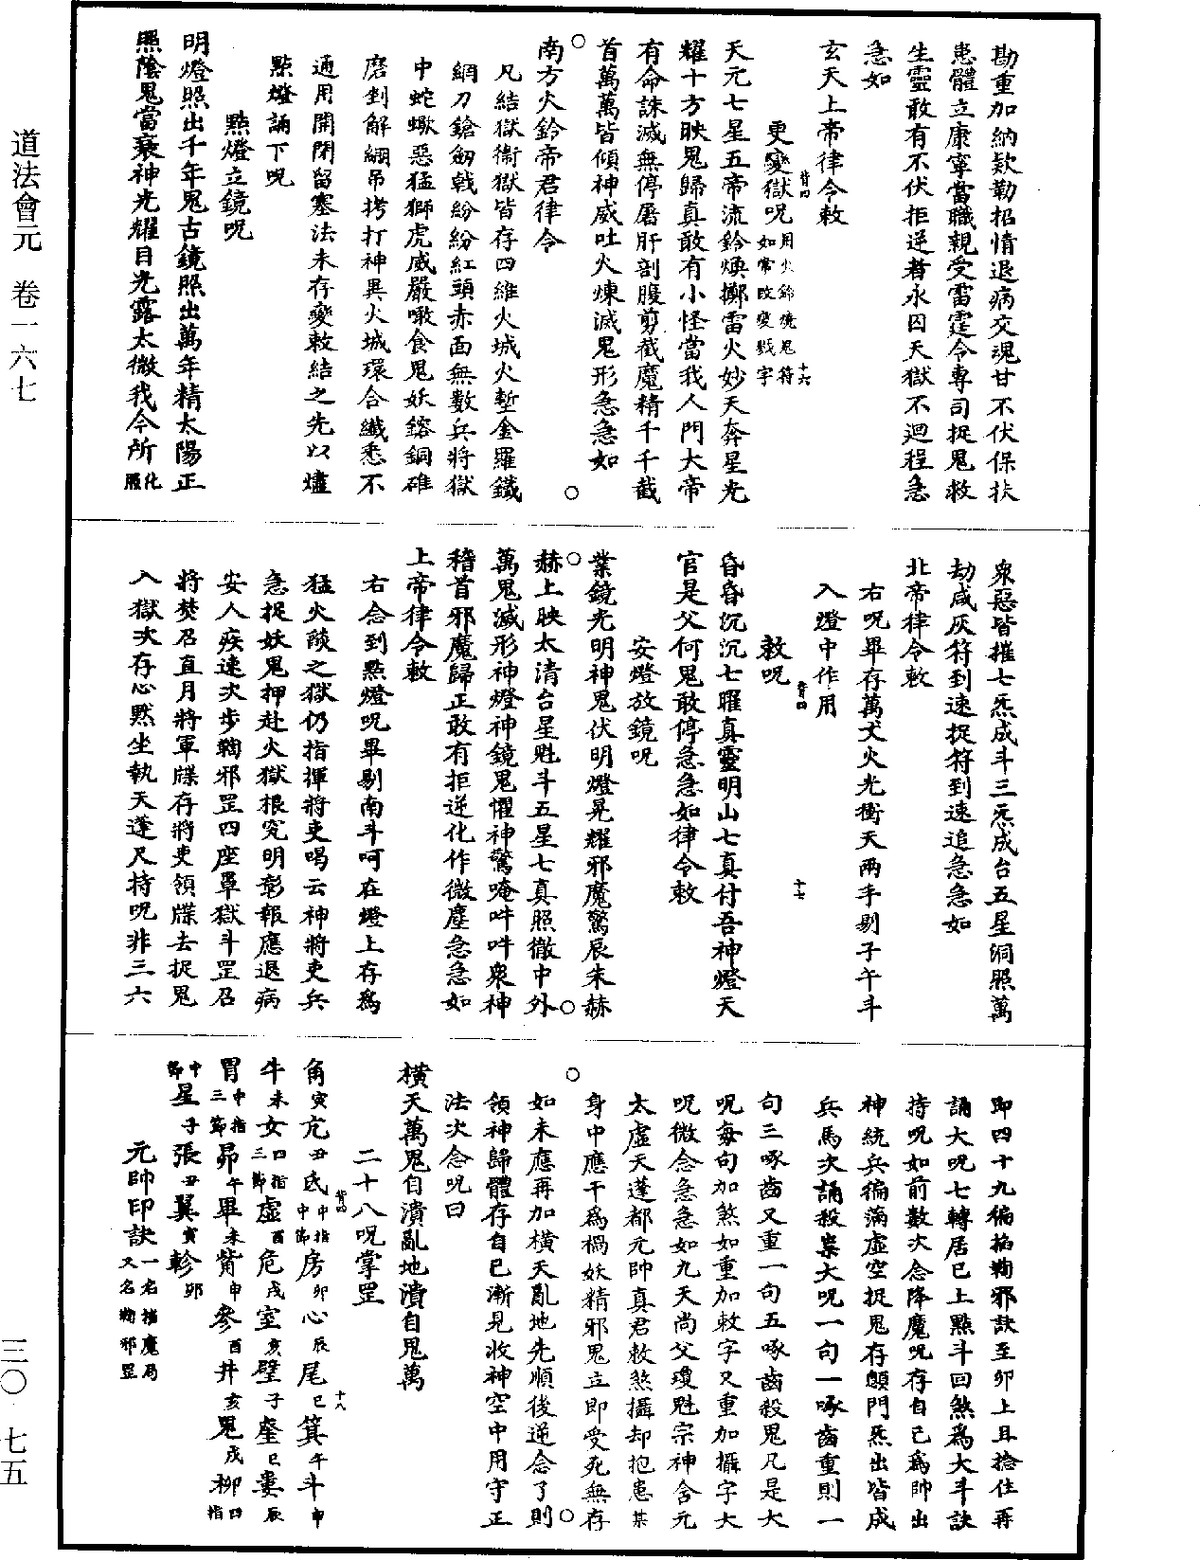 道法會元　卷一六七
勘重加納欵勒招情退病交魂甘不伏保扶
患體立康寧當職親受雷霆令專司捉鬼救
生靈敢有不伏拒逆者永囚天獄不迴程急
急如
玄天上帝律令敕
更變獄呪用火鈴燒鬼符如常改變戮字
背四
十六
天元七星五帝流鈴煥擲雷火妙天奔星光
耀十方映鬼歸真敢有小怪當我人門大帝
有命誅滅無停屠肝剖腹剪截魔精千千截
首萬萬皆傾神威吐火煉滅鬼形急急如
南方火鈴帝君律令
凡結獄衞獄皆存四維火城火塹金羅鐵
網刀鎗劒戟紛紛紅頭赤面無數兵將獄
中蛇蠍惡猛獅虎威嚴噉食鬼妖鎔銅碓
磨剉解綳吊拷打神異火城環合纖悉不
通用開閉留塞法未存變敕結之先以燼
點燈誦下呪
點燈立鏡呪
明燈照出千年鬼古鏡照出萬年精太陽正
照陰鬼當衰神光耀目光露太微我今所化照
衆惡皆摧七炁成斗三炁成台五星洞照萬
劫咸灰符到速捉符到速追急急如
北帝律令敕
右呪畢存萬丈火光衝天兩手剔子午斗
入燈中作用
敕呪
背四
十七
昏昏沉沉七曜真靈明山七真付吾神燈天
官是父何鬼敢停急急如律令敕
安燈放鏡呪
業鏡光明神鬼伏明燈晃耀邪魔驚辰朱赫
赫上映太清台星魁斗五星七真照徹中外
萬鬼滅形神燈神鏡鬼懼神驚唵吽吽衆神
稽首邪魔歸正敢有拒逆化作微塵急急如
上帝律令敕
右念到點燈呪畢剔南斗呵在燈上存爲
猛火燄之獄仍指揮將吏喝云神將吏兵
急捉妖鬼押赴火獄根究明彰報應退病
安人疾速次步鞫邪罡四座罩獄斗罡召
將焚召直月將軍牒存將吏領牒去捉鬼
入獄次存心默坐執天蓬尺持呪非三六
即四十九徧掐鞫邪訣至卯上且捻住再
誦大呪七轉居已上點斗回煞爲大斗訣
持呪如前數次念降魔呪存自己爲帥出
神統兵徧滿虛空捉鬼存顖門炁出皆成
兵馬次誦殺祟大呪一句一啄齒重則一
句三啄齒又重一句五啄齒殺鬼凡是大
呪每句加煞如重加敕字又重加攝字大
呪微念急急如九天尚父瓊魁宗神舍元
太虛天蓬都元帥真君敕煞攝却抱患某
身中應干爲禍妖精邪鬼立即受死無存
如未應再加横天亂地先順後逆念了則
領神歸體存自已漸見收神空中用守正
法次念呪曰
横天萬鬼自潰亂地潰自鬼萬
二十八呪掌罡
背四
十八
角寅亢丑氐中指中節房卯心辰尾巳箕午斗申
牛未女四指三節虛酉危戌室亥壁子奎巳婁辰
胃中指三節昴午畢未觜申參酉井亥鬼戌柳四指
中節星子張丑翼寅軫卯
元帥印訣一名捲魔局又名鞫邪罡
三〇・七五